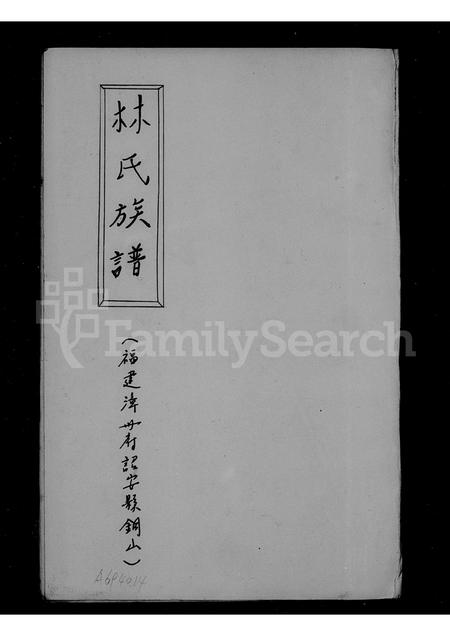 林氏族譜
(福建漳州府詔安縣銅山)
FamilySearch
A694014